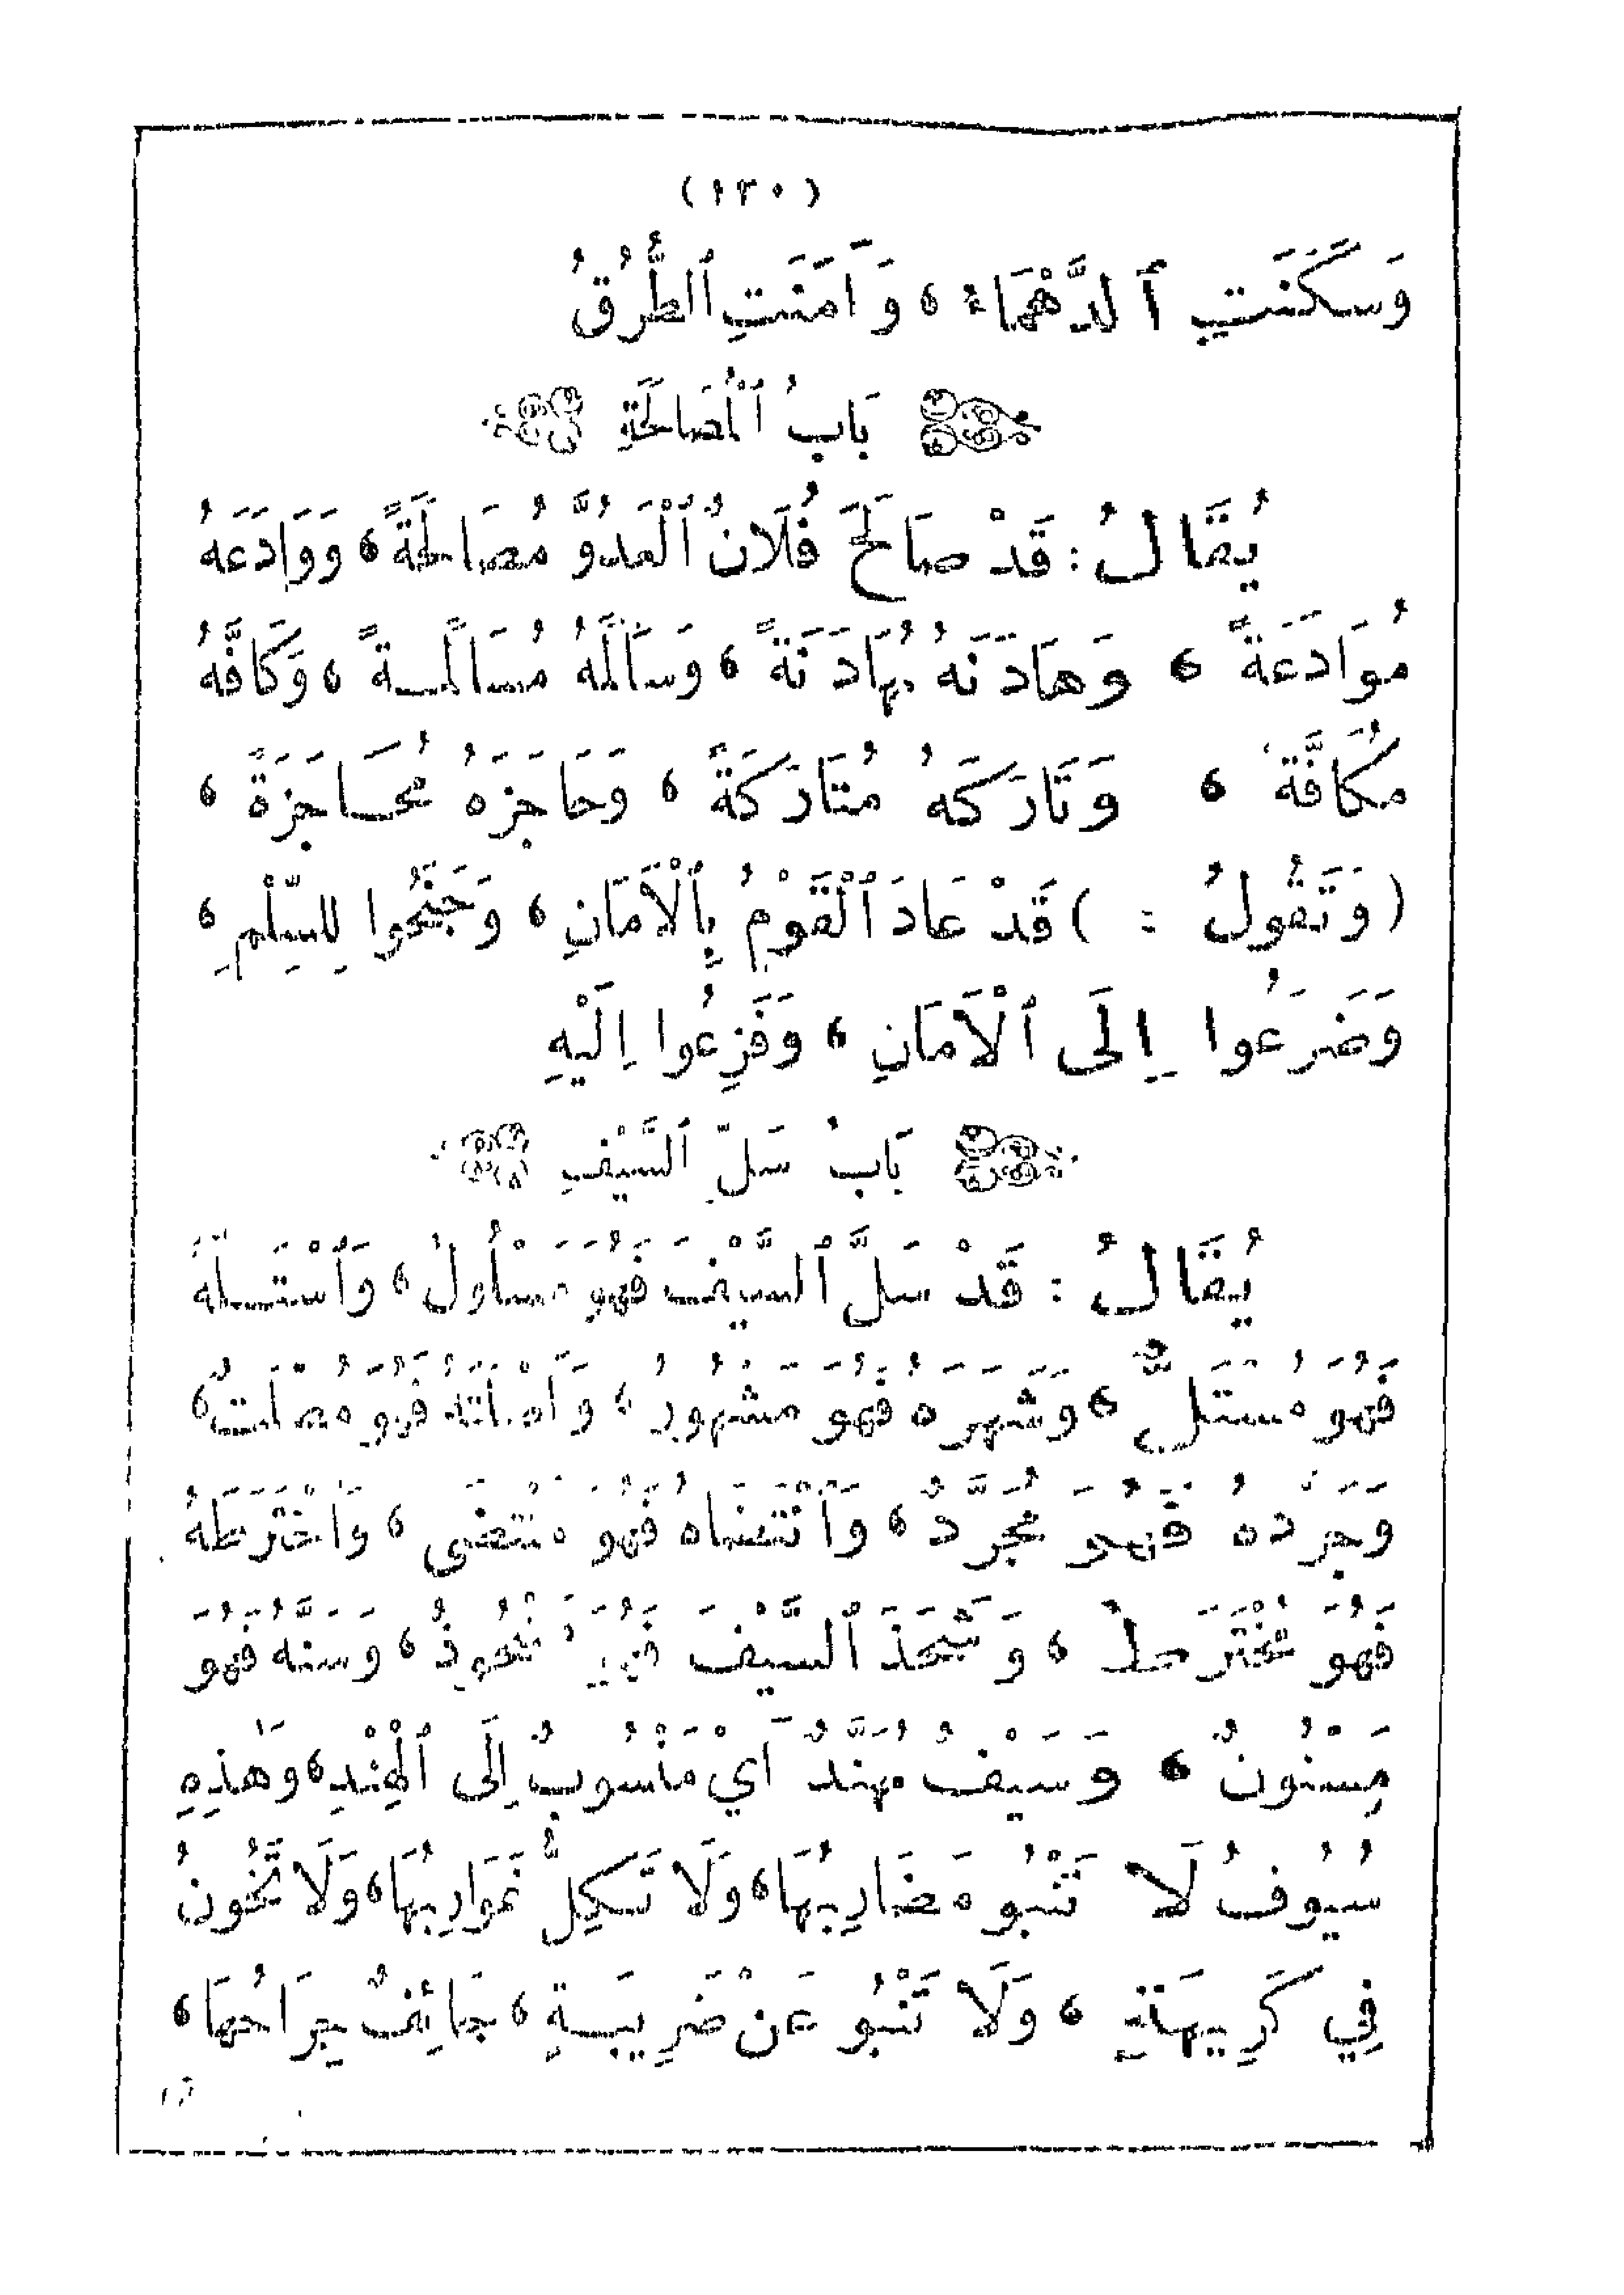 (١٣٠)
وَسَكَنَتِ ٱلدَّهْمَاءُ، وَأَمِنَتِ ٱلطُّرُقُ
بَابُ ٱلْمُصَالَحَةِ
يُقَالُ: قَدْ صَالَحَ فُلَانٌ ٱلْعَدُوَّ مُصَالَحَةً، وَوَادَعَهُ
مُوَادَعَةً، وَهَادَنَهُ مُهَادَنَةً، وَسَالَمَهُ مُسَالَمَةً، وَكَافَّهُ
مُكَافَّةً، وَتَارَكَهُ مُتَارَكَةً، وَحَاجَزَهُ مُحَاجَزَةً،
(وَتَقُولُ:) قَدْ عَاذَ ٱلْقَوْمُ بِٱلْأَمَانِ، وَجَنَحُوا لِلسِّلْمِ،
وَضَرَعُوا إِلَى ٱلْأَمَانِ، وَفَزِعُوا إِلَيْهِ
بَابُ سَلِّ ٱلسَّيْفِ
يُقَالُ: قَدْ سَلَّ ٱلسَّيْفَ فَهُوَ مَسْلُولٌ، وَٱسْتَلَّهُ
فَهُوَ مُسْتَلٌّ، وَشَهَرَهُ فَهُوَ مَشْهُورٌ، وَأَصْلَتَهُ فَهُوَ مُصْلَتٌ،
وَجَرَّدَهُ فَهُوَ مُجَرَّدٌ، وَٱنْتَضَاهُ فَهُوَ مُنْتَضًى، وَٱخْتَرَطَهُ
فَهُوَ مُخْتَرَطٌ، وَشَحَذَ ٱلسَّيْفَ فَهُوَ مَشْحُوذٌ، وَسَنَّهُ فَهُوَ
مَسْنُونٌ، وَسَيْفٌ مُهَنَّدٌ أَيْ مَنْسُوبٌ إِلَى ٱلْهِنْدِ، وَهٰذِهِ
سُيُوفٌ لَا تَنْبُو مَضَارِبُهَا، وَلَا تَكِلُّ غَوَارِبُهَا، وَلَا تَخُونُ
فِي كَرِيهَةٍ، وَلَا تَنْبُو عَنْ ضَرِيبَةٍ، جَائِفٌ جِرَاحُهَا،